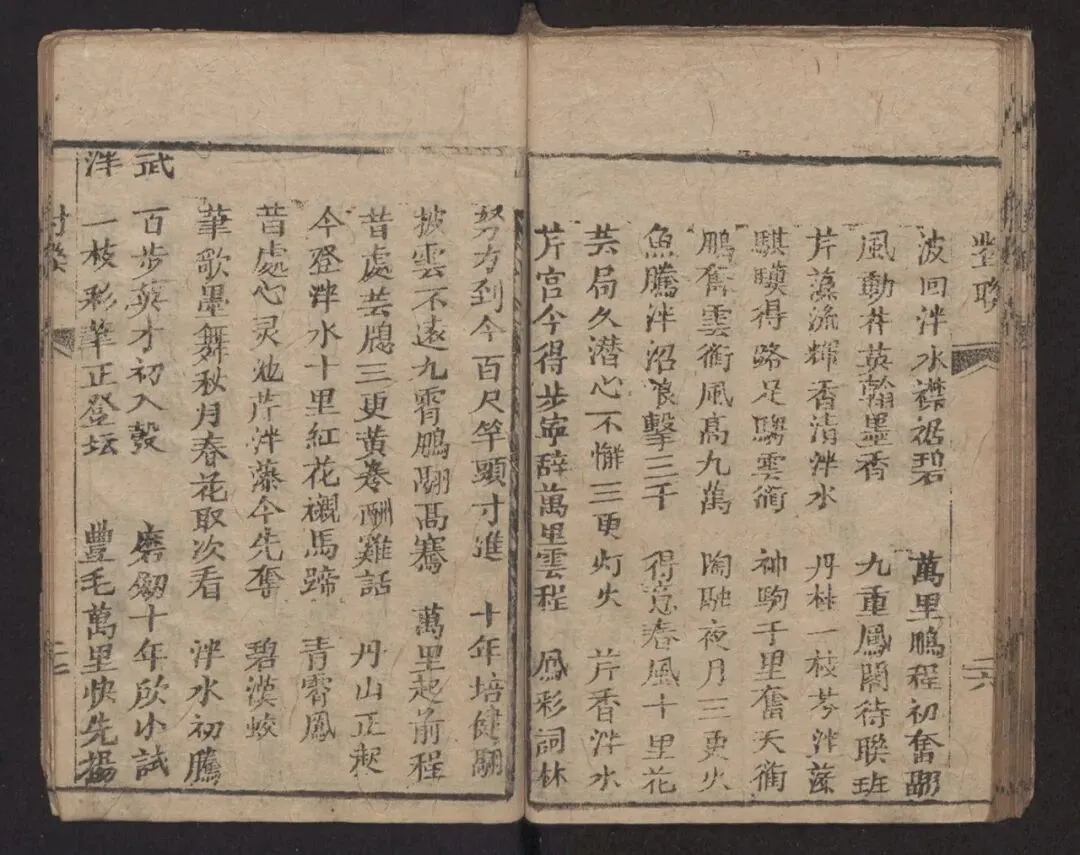 堂聯
波回泮水襟裾碧 萬里鵬程初奮翮
風動芹英翰墨香 九重鳳閣待聯班
芹藻流輝香清泮水 丹林一枝芩泮藻
騏驥得路足騁雲衢 神駒千里奮天衢
鵬奮雲衢風高九萬 陶融夜月三更火
魚騰泮沼浪擊三千 得意春風十里花
芸局久潜心不懈三更灯火 芹香泮水
芹宮今得步寧辞萬里雲程 鳳彩詞林
二六
努力到今百尺竿頭寸進 十年培健翮
披雲不遠九霄鵬翮髙騫 萬里起前程
昔處芸牕三更黄卷酬雞話 丹山正起
今登泮水十里紅花襯馬蹄 青霄鳳
昔處心灵池芹泮藻今先奪 碧漢蛟
筆歌墨舞秋月春花取次看 泮水初騰
武 百步英才初入彀 磨劔十年欣小試
泮 一枝彩筆正登坛 豐毛萬里快先揚